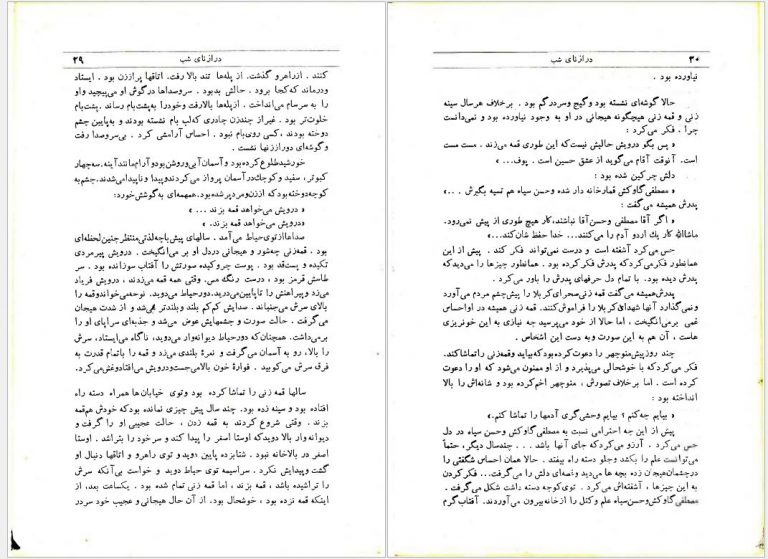 ۲۹ درازنای شب
کنند . ازراهرو گذشت. از پله‌ها تند بالا رفت. اتاقها پراززن بود . ایستاد
ودرماند که‌کجا برود . حالش بدبود . سروصداها درگوش او می‌پیچید واو
را به سرسام می‌انداخت . ازپله‌ها بالارفت وخودرا به‌پشت‌بام رساند . پشت‌بام
خلوت‌تر بود. غیراز چندزن چادری که‌لب بام نشسته بودند و به‌پایین چشم
دوخته بودند ، کسی روی‌بام نبود . احساس آرامشی کرد . بی‌سروصدا رفت
و گوشه‌ای دوراززنها نشست .
خورشیدطلوع کرده‌بود و آسمان آبی وروشن‌بود و آرام‌مانندآینه. سه‌چهار
کبوتر، سفید و کوچك درآسمان پرواز می‌کردندو پیدا وناپیدا می‌شدند. چشم به
کوچه‌دوخته‌بودکه اززن ومردپرشده‌بود.همهمه‌ای به گوشش‌خورد:
« درویش می‌خواهد قمه بزند ... »
«درویش می‌خواهد قمه بزند. »
صداها ازتوی حیاط می‌آمد . سالهای پیش باچه‌لذتی منتظرچنین لحظه‌ای
بود . قمه‌زنی چه‌شور و هیجانی دردل او بر می‌انگیخت . درویش پیرمردی
تکیده و پست‌قد بود . پوست چروکیده صورتش را آفتاب سوزانده بود . سر
طاسش قرمز بود ، درست رنگ مس. وقتی همه قمه می‌زدند ، درویش فریاد
می‌زد و پیراهنش را تاپایین‌می‌درید. دورحیاط می‌دوید. نوحه‌می‌خواندوقمه را
بالای سرش می‌جنباند . صدایش کم‌کم بلند وبلندتر می‌شد و از شدت هیجان
می‌گرفت . حالت صورت و چشمهایش عوض می‌شد و جذبه‌ای سراپای او را
برمی‌داشت. همچنان که‌دورحیاط دیوانه‌وار می‌دوید، ناگاه می‌ایستاد، سرش
را بالا، رو به آسمان می‌گرفت و نعرهٔ بلندی می‌زد و قمه را باتمام قدرت به
فرق سرش می‌کوبید . فوارهٔ خون بالامی‌جست‌ودرویش می‌افتادوغش‌می‌کرد.
سالها قمه زنی را تماشا کرده بود وتوی خیابان‌ها همراه دسته راه
افتاده بود و سینه زده بود. چند سال پیش چیزی نمانده بود که خودش هم‌قمه
بزند . وقتی شروع کردند به قمه زدن ، حالت عجیبی او را گرفت و
دیوانه‌وار بالا دویدکه اوستا اصغر را پیدا کند و سرخود را بتراشد . اوستا
اصغر در بالاخانه نبود . شتابزده پایین دوید و توی راهرو و اتاقها دنبال او
گشت وپیدایش نکرد . سراسیمه توی حیاط دوید و خواست بی‌آنکه سرش
را تراشیده باشد ، قمه بزند ، اما قمه زنی تمام شده بود . یکساعت بعد، از
اینکه قمه نزده بود ، خوشحال بود. از آن حال هیجانی و عجیب خود سردر
درازنای شب ۳۰
نیاورده بود .
حالا گوشه‌ای نشسته بود و گیج وسردرگم بود . برخلاف هرسال سینه
زنی و قمه زنی هیچگونه هیجانی در او به وجود نیاورده بود و نمی‌دانست
چرا . فکر می‌کرد :
« پس بگو درویش حالیش نیست‌که این طوری قمه می‌زند . مست مست
است. آنوقت آقام می‌گوید از عشق حسین است . پوف... »
دلش چرکین شده بود :
« مصطفی گاوکش قمارخانه دار شده وحسن سیاه هم تسیه بگیرش . ..»
پدرش همیشه می‌گفت :
« اگر آقا مصطفی وحسن‌آقا نباشند،کار هیچ طوری از پیش نمی‌رود.
ماشاءالله کار یك اردو آدم را می‌کنند... خدا حفظ شان‌کند...»
حس می‌کرد آشفته است و درست نمی‌تواند فکر کند . پیش از این
همانطور فکرمی‌کردکه پدرش فکرکرده بود . همانطور چیزها را می‌دیدکه
پدرش دیده بود. با تمام دل حرفهای پدرش را باور می‌کرد .
پدرش‌همیشه می‌گفت قمه زنی‌صحرای‌کربلا را پیش‌چشم مردم می‌آورد
ونمی‌گذارد آنها شهدای‌کربلا را فراموش‌کنند. قمه زنی همیشه در اواحساس
غمی برمی‌انگیخت ، اما حالا از خود می‌پرسید چه نیازی به این خونریزی
هاست ، آن هم به این صورت و به دست این اشخاص .
چند روزپیش‌منوچهر را دعوت کرده‌بودکه‌بیاید وقمه‌زنی‌راتماشاکند.
فکر می‌کردکه با خوشحالی می‌پذیرد و از او ممنون می‌شود که او را دعوت
کرده است . اما برخلاف تصورش ، منوچهر اخم‌کرده بود و شانه‌اش را بالا
انداخته بود :
« بیایم چه‌کنم ؟ بیایم وحشی‌گری آدمها را تماشا کنم.»
پیش از این چه احترامی نسبت به مصطفی‌گاوکش وحسن سیاه در دل
حس می‌کرد . آرزو می‌کرد که جای آنها باشد ... چندسال دیگر، حتماً
می‌توانست علم را بکشد وجلو دسته راه بیفتد . حالا همان احساس شگفتی را
درچشمان‌هیجان زده بچه ها می‌دید وغصه‌ای دلش را می‌گرفت... فکرکردن
به این چیزها ، آشفته‌اش می‌کرد . توی‌کوچه دسته داشت شکل می‌گرفت .
مصطفی‌گاوکش‌وحسن‌سیاه علم وکتل را ازخانه‌بیرون می‌آوردند. آفتاب‌گرم